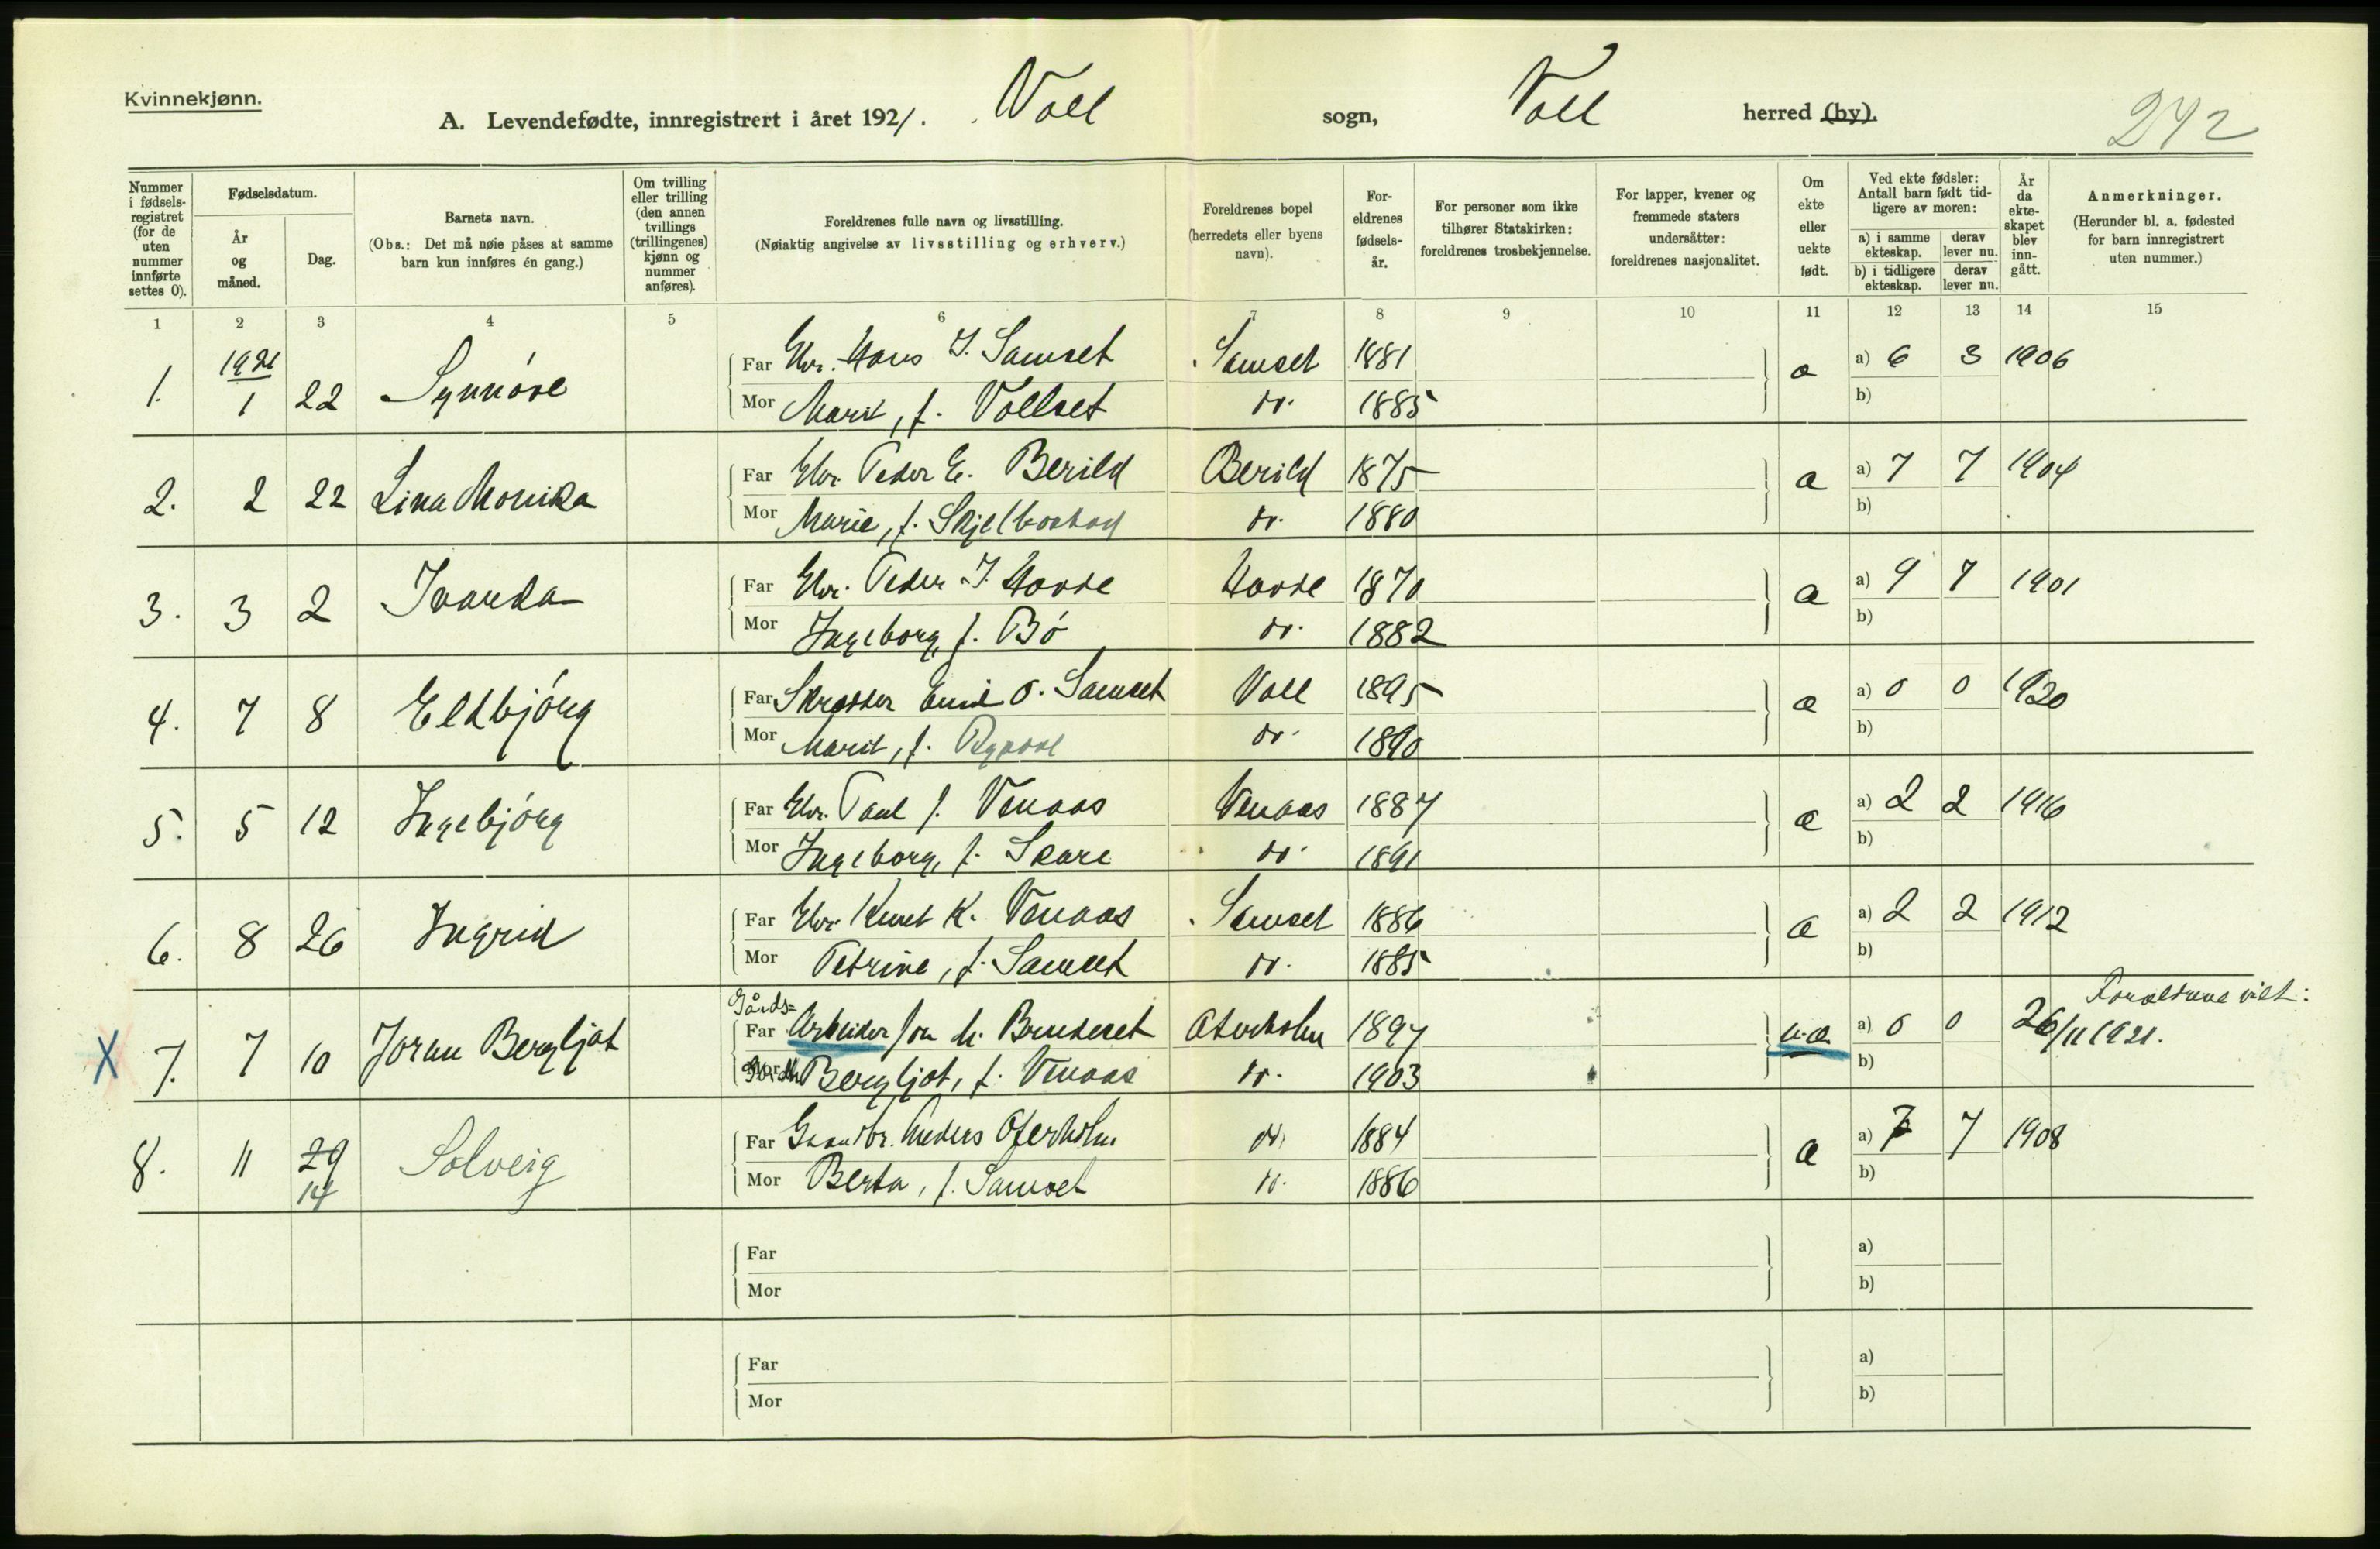 Kvinnekjønn.
A. Levendefødte, innregistrert i året 1921. Voll sogn, Voll herred (by).
242
Nummer i fødselsregistret (for de uten nummer innførte settes 0).
Fødselsdatum.
År og måned.
Dag.
Barnets navn.
(Obs.: Det må nøie påses at samme barn kun innføres én gang.)
Om tvilling eller trilling (den annen tvillings (trillingenes) kjønn og nummer anføres).
Foreldrenes fulle navn og livsstilling.
(Nøiaktig angivelse av livsstilling og erhverv.)
Foreldrenes bopel (herredets eller byens navn).
Foreldrenes fødselsår.
For personer som ikke tilhører Statskirken: foreldrenes trosbekjennelse.
For lapper, kvener og fremmede staters undersåtter: foreldrenes nasjonalitet.
Om ekte eller uekte født.
Ved ekte fødsler: Antall barn født tidligere av moren:
a) i samme ekteskap. derav lever nu.
b) i tidligere ekteskap. derav lever nu.
År da ekteskapet blev inngått.
Anmerkninger.
(Herunder bl. a. fødested for barn innregistrert uten nummer.)
1 2 3 4 5 6 7 8 9 10 11 12 13 14 15
1. 1921 1 22 Synnöve Far Gbr. Hans I. Samset Samset 1881 æ a) 6 3 1906
Mor Marit, f. Vollset do. 1885 b)
2. 2 22 Lina Monika Far Gbr. Peder E. Berild Berild 1875 æ a) 7 7 1904
Mor Marie, f. Skjelbostad do. 1880 b)
3. 3 2 Ivanda Far Gbr. Peder I. Hovde Hovde 1870 æ a) 9 7 1901
Mor Ingeborg, f. Bö do. 1882 b)
4. 7 8 Eldbjörg Far Skredder Emil O. Samset Voll 1895 æ a) 0 0 1920
Mor Marit, f. do. 1890 b)
5. 5 12 Ingebjörg Far Gbr. Paul J. Venaas Venaas 1887 æ a) 2 2 1916
Mor Ingeborg, f. Skare do. 1891 b)
6. 8 26 Ingrid Far Gbr. Knut K. Venaas Samset 1886 æ a) 2 2 1912
Mor Petrine, f. Samset do. 1885 b)
Foreldrene viet:
X 7. 7 10 Jorun Bergljot Far Gårds= Arbeider Jon Bruteset Oterholm 1897 u.æ. a) 0 0 26/11 1921.
Mor Bergljot, f. Venaas do. 1903 b)
8. 11 29 14 Solveig Far Gaardbr. Anders Oterholm do. 1884 æ a) 7 7 1908
Mor Berta, f. Samset do. 1886 b)
Far a)
Mor b)
Far a)
Mor b)